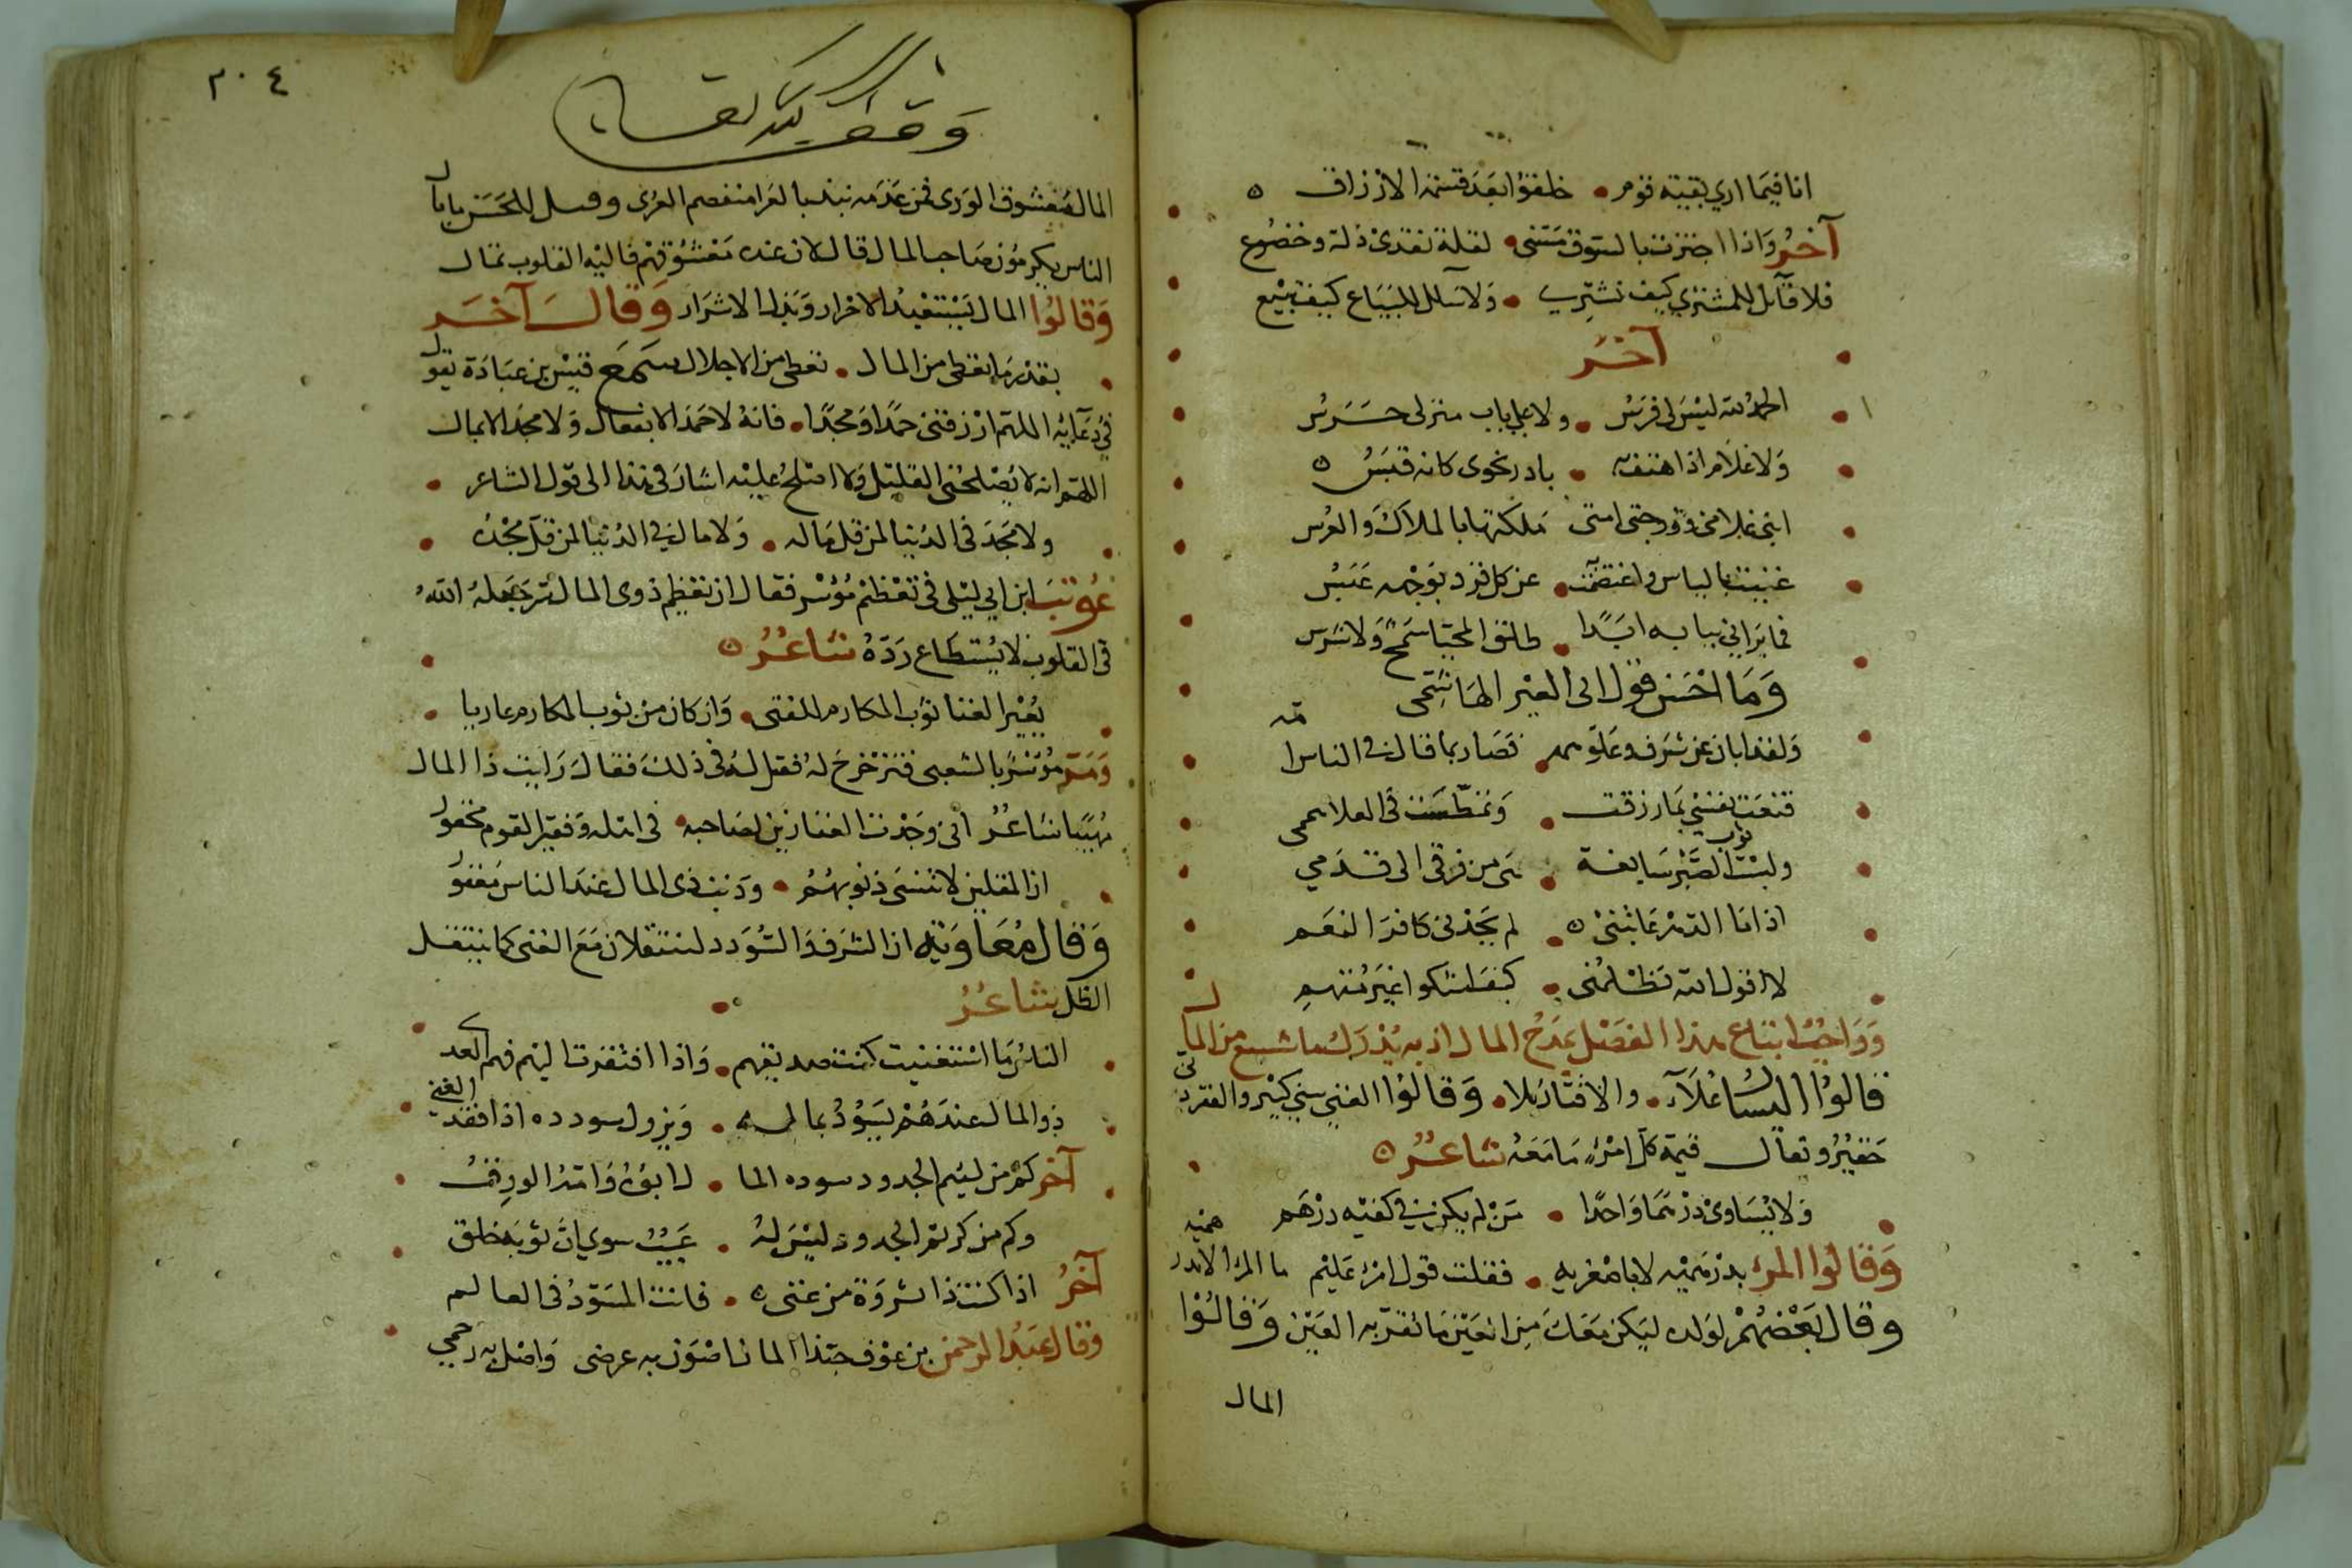 انا فيما اري بقية قوم • خلقوا بعد قسمة الارزاق ه
آخر واذا اجتزت بالسوق متني • لقلة نقدي ذلة وخضوع
فلا قائل للمشتري كيف تشتري • ولا سائل للبياع كيف تبيع
آخر
الحمد لله ليس لي فرس • ولا علي باب منزلي حرس
ولا غلام اذا هتفت به • بادر نحوي كانه قبس ه
ابني غلامي وزوجتي امتي ملكتها بالملاك والعرس
غنيت بالياس واعتصمت • عن كل فرد بوجهه عبس
فما يراني ببابه ابدا • طلق المحيا سمح ولا شرس
وما احسن قول ابي العير الهاشمي
ولقد ابان عن شرف وعلو همه • فصار بما قال في الناس
قنعت نفسي بما رزقت • وتمطت في العلا هممي
ولبست ثوب الصبر سابغة • هي من فرقي الى قدمي
اذا ما الدهر عاتبني ه • لم يجدني كافر النعم
لا اقول الله يظلمني • كيف اشكوا غير متهم
وواجب اتباع هذا الفصل بمدح المال اذ به يدرك ما شسع من المال
قالوا اليسا علاء • والاقتار بلا • وقالوا الغني سني كبير والفقر دني
حقير وتعال قيمة كل امرء ما معه شاعر ه
ولا يساوي درهما واحدا • من لم يكن في كفه درهم
وقالوا المرء بدرهميه لا باصغريه • فقلت قول امرء عليم ما المرء الا بدرهميه
وقال بعضهم لولده ليكن معك من العين ما تقر به العين وقالوا
المال
٢٠٤
وقف لله تعالى
المال معشوق الورى فمن عدمه نبذ بالعرا منفصم العرى وقيل للحسن ما بال
الناس يكرمون صاحب المال قال لان عنده معشوقهم فاليه القلوب تمال
وقالوا المال يستعبد الاحرار ويذل الاشرار وقال آخر
بقدر ما تعطي من المال • تعطى من الاجلال سمع قيس بن عبادة يقول
في دعائه اللهم ارزقني حمدا ومجدا • فانه لا حمد الا بفعال ولا مجد الا بمال
اللهم انه لا يصلحني القليل ولا اصلح عليه اشار في هذا الى قول الشاعر •
ولا مجد في الدنيا لمن قل ماله • ولا مال في الدنيا لمن قل مجده
عوتب ابن ابي ليلى في تعظيم موسر فقال ان تعظيم ذوي المال سر جعله الله
في القلوب لا يستطاع رده شاعر ه
يعير الغنا ثوب المكارم للفتى • وان كان من ثوب المكارم عاريا •
ومر موسر بالشعبي فتزحزح له فقيل له في ذلك فقال رايت ذا المال
مهيبا شاعر اني وجدت الغنا زين لصاحبه • في اهله وفقير القوم محقول
ان المقلين لا تنسى ذنوبهم • وذنب ذي المال عند الناس مغفول
وقال معاوية ان الشرف والسودد لينتقلان مع الغنى كما ينتقل
الظل شاعر •
الناس ما استغنيت كنت صديقهم • واذا افتقرت اليهم فهم العدي
ذو المال عندهم يسود بماله • ويزول سودده اذا فقد الغني
آخر كم من لئيم الجدود سوده الما • ل ابوه وامه الورق
وكم من كريم الجدود ليس له • عيب سوي ان ثوبه خلق
آخر اذا كنت ذا ثروة من غنى ه • فانت المسود في العالم
وقال عبد الرحمن بن عوف حبذا المال اصون به عرضي واصل به رحمي